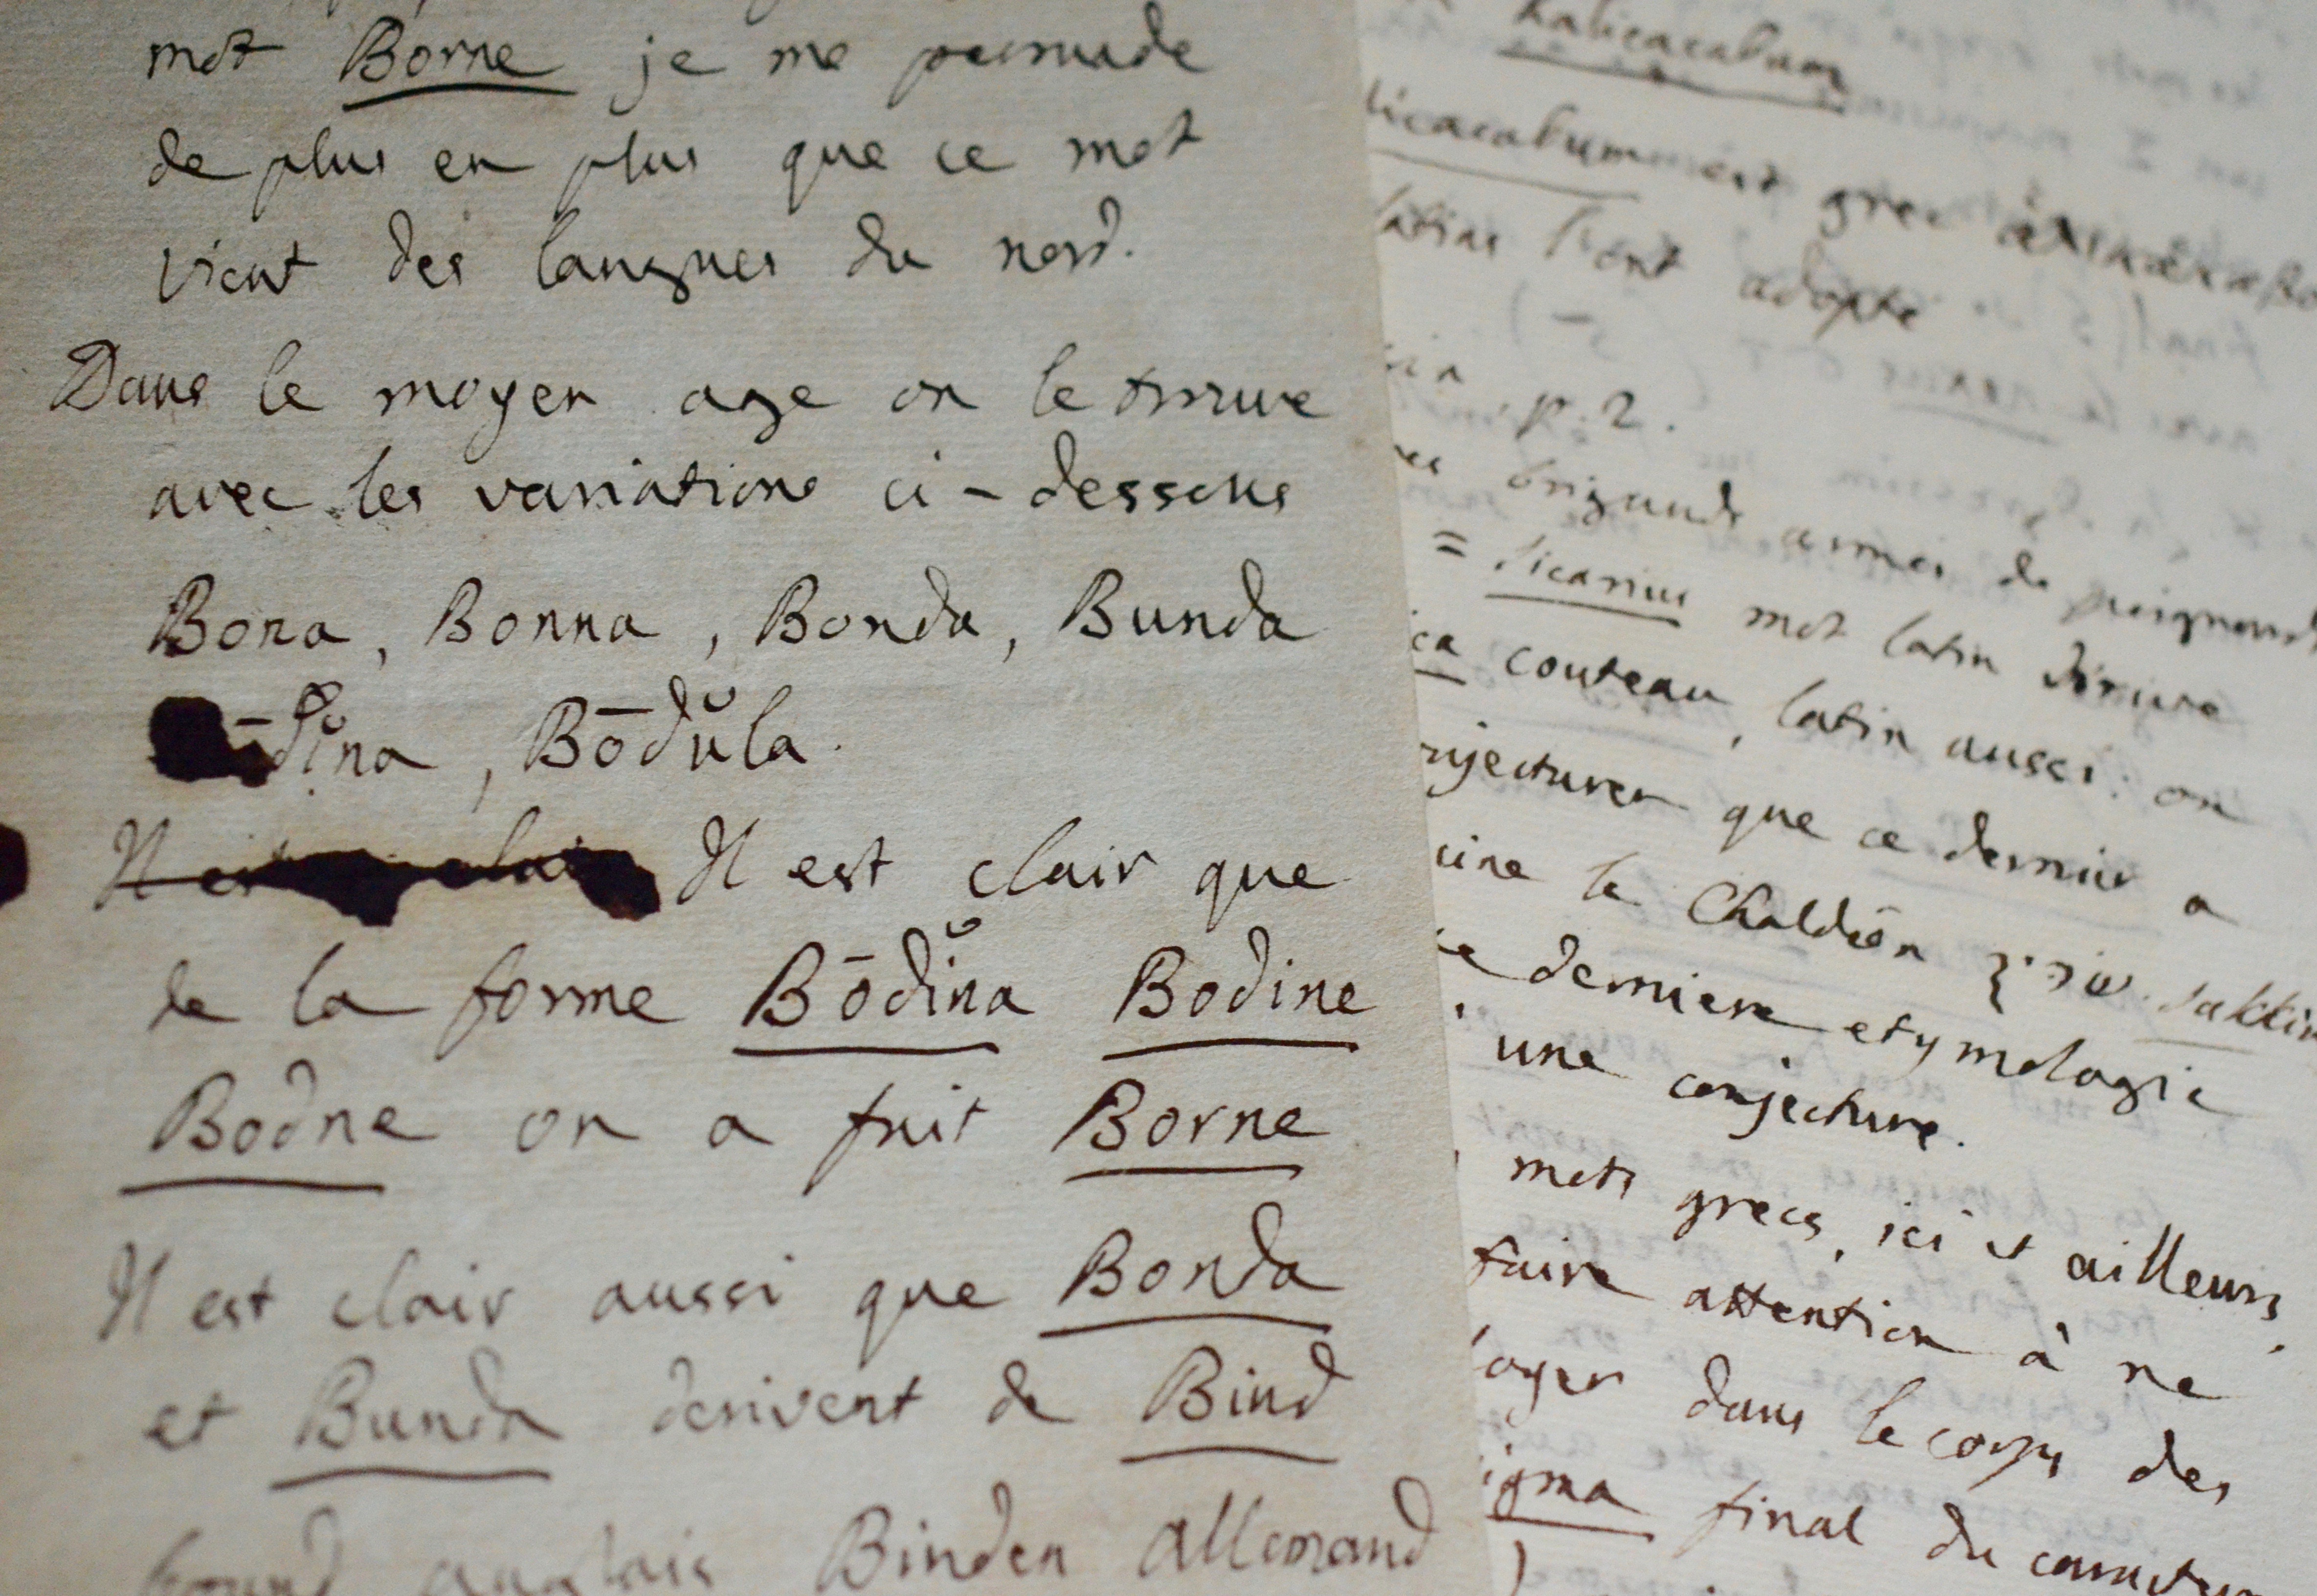 mot Borne je me persuade
de plus en plus que ce mot
vient des langues du nord.
Dans le moyen age on le trouve
avec les variations ci-dessous
Bona, Bonna, Bonda, Bunda
ōdĭna, Bōdŭla.
Il est clair Il est clair que
de la forme Bōdĭna Bodine
Bodne on a fait Borne
Il est clair aussi que Bonda
et Bunda derivent de Bind
bound anglais Binden allemand
halicacabum
licacabum est grec
latins l'ont adopté
p. 2.
brigands armés de poignards
= sicarius mot latin dérivé
ca couteau, latin aussi. on
njecturer que ce dernier a
cine le Chaldéen
ce derniere etymologie
une conjecture.
mots grecs, ici et ailleurs,
faire attention à ne
loyer dans le corps des
igma final du caracter